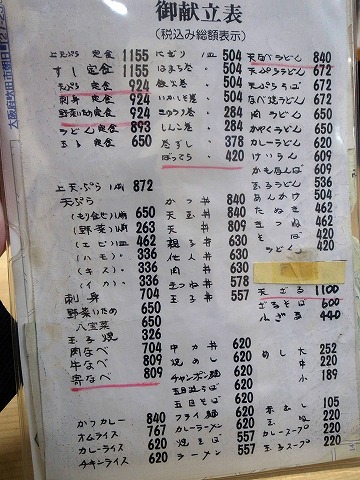 御献立表
(税込み総額表示)
上天ぷら定食 1155
すし定食 1155
天ぷら定食 924
刺身定食 924
野菜いため定食 924
うどん定食 893
玉子定食 650
上天ぷら 1皿 872
天ぷら
(野菜) 263
(エビ) 462
(ハモ) 336
(キス) 336
(イカ) 336
刺身 704
野菜いため 650
八宝菜 650
玉子焼 326
肉なべ 704
牛なべ 809
寄なべ 809
カツカレー 840
オムライス 767
カレーライス 620
チキンライス 620
にぎり 1皿 504
はまち巻 〃 504
鉄火巻 〃 504
いかしそ巻 〃 504
きゅうり巻 〃 284
しんこ巻 〃 284
巻ずし 〃 378
ばってら 〃 420
カツ丼 840
天玉丼 840
天丼 630
親子丼 630
他人丼 630
肉丼 630
きつね丼 578
玉子丼 557
中カ丼 620
焼めし 620
チャンポン麺 620
五目そば 620
フライ麺 620
カレーラーメン 620
焼そば 557
ラーメン 557
天なべうどん 840
天ぷらうどん 672
天ぷらそば 672
なべ焼うどん 672
肉うどん 650
かやくうどん 650
カレーうどん 620
けいらん 609
かもなんば 609
玉子うどん 536
あんかけ 504
たぬき 462
きつね 462
そば 420
うどん 420
天ざる 1100
ざるそば 600
小ざる 440
めし 大 252
中 220
小 189
赤だし 105
玉吸 220
カレースープ 220
玉子スープ 220